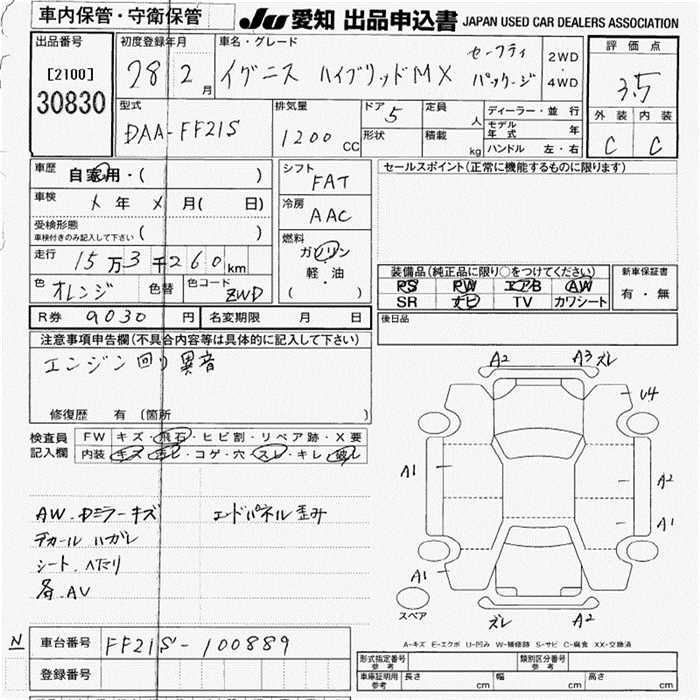 車内保管・守衛保管
JU 愛知 出品申込書 JAPAN USED CAR DEALERS ASSOCIATION
出品番号
[2100]
30830
初度登録年月
28 2 月
車名・グレード
イグニス ハイブリッドMX
セーフティ
パッケージ
2WD
・
4WD
評価点
3.5
外装 内装
C C
型式
DAA-FF21S
排気量
1200 CC
ドア 5
形状
定員 人
積載 kg
ディーラー・並行
モデル年式 年
ハンドル 左・右
車歴
自家用・( )
車検
メ 年 メ 月( 日)
受検形態
車検付きのみ記入して下さい ( )
走行
15万3千260km
色 オレンジ 色替 色コード ZWD
シフト
FAT
冷房
AAC
燃料
ガソリン
・
軽・油
( )
セールスポイント(正常に機能するものに限ります)
装備品(純正品に限り○をつけてください)
PS PW エアB AW
SR ナビ TV カワシート
新車保証書
有・無
後日品
R券 9030 円 名変期限 月 日
注意事項申告欄(不具合内容等は具体的に記入して下さい)
エンジン回り異音
修復歴 有 〔箇所 〕
検査員
記入欄
FW キズ・飛石・ヒビ割・リペア跡・X要
内装 キズ・汚レ・コゲ・穴・スレ・キレ・破レ
AW.ドミラーキズ エンドパネル歪み
デカール ハガレ
シート.ヘタリ
各.AU
A2 A3 ズレ
U4
A1
A2
A1
A1
スペア
ズレ A2
A-キズ E-エクボ U-凹み W-補修跡 S-サビ C-腐食 XX-交換済
N
車台番号 FF21S-100889
登録番号
形式指定番号
参考
類別区分番号
参考
車庫証明用
参考
長さ cm 幅 cm 高さ cm